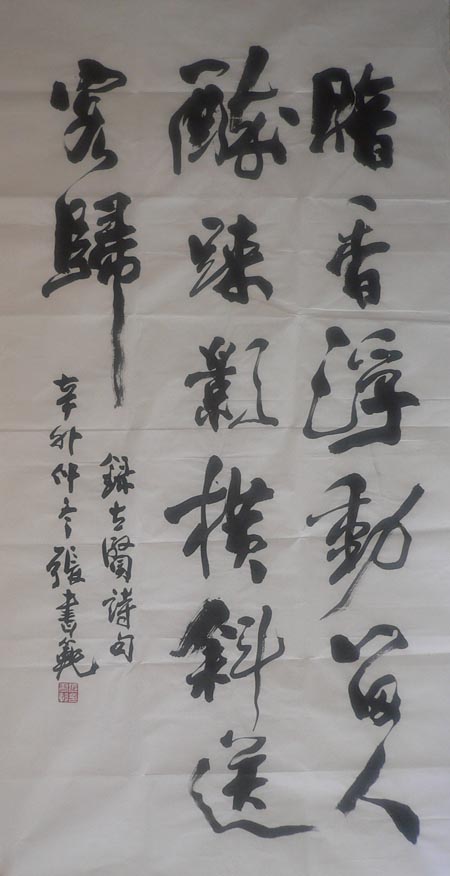 暗香浮動留人
醉踈影横斜送
客歸
錄古賢詩句
辛卯仲冬張書範